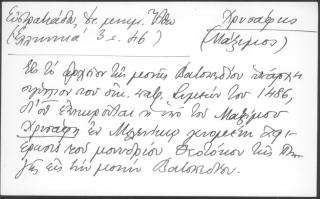 Εὐστρατιάδη, Ἁγ. μνημ. Ἄθω
Χρυσάφης
(Ἑλληνικά 3 σ. 46)
(Μάξιμος)
Εἰς τὸ ἀρχεῖον τῆς μονῆς Βατοπεδίου ὑπάρχει
τοῦ οἰκ. πατρ. Συμεὼν τοῦ 1486,
δι' οὗ ἐπικυροῦται ἡ ὑπὸ τοῦ Μαξίμου
Χρυσάφη ἐν Μελενίκῳ γενομένη
τοῦ μονυδρίου Θεοτόκου τῆς
εἰς τὴν μονὴν Βατοπεδίου.